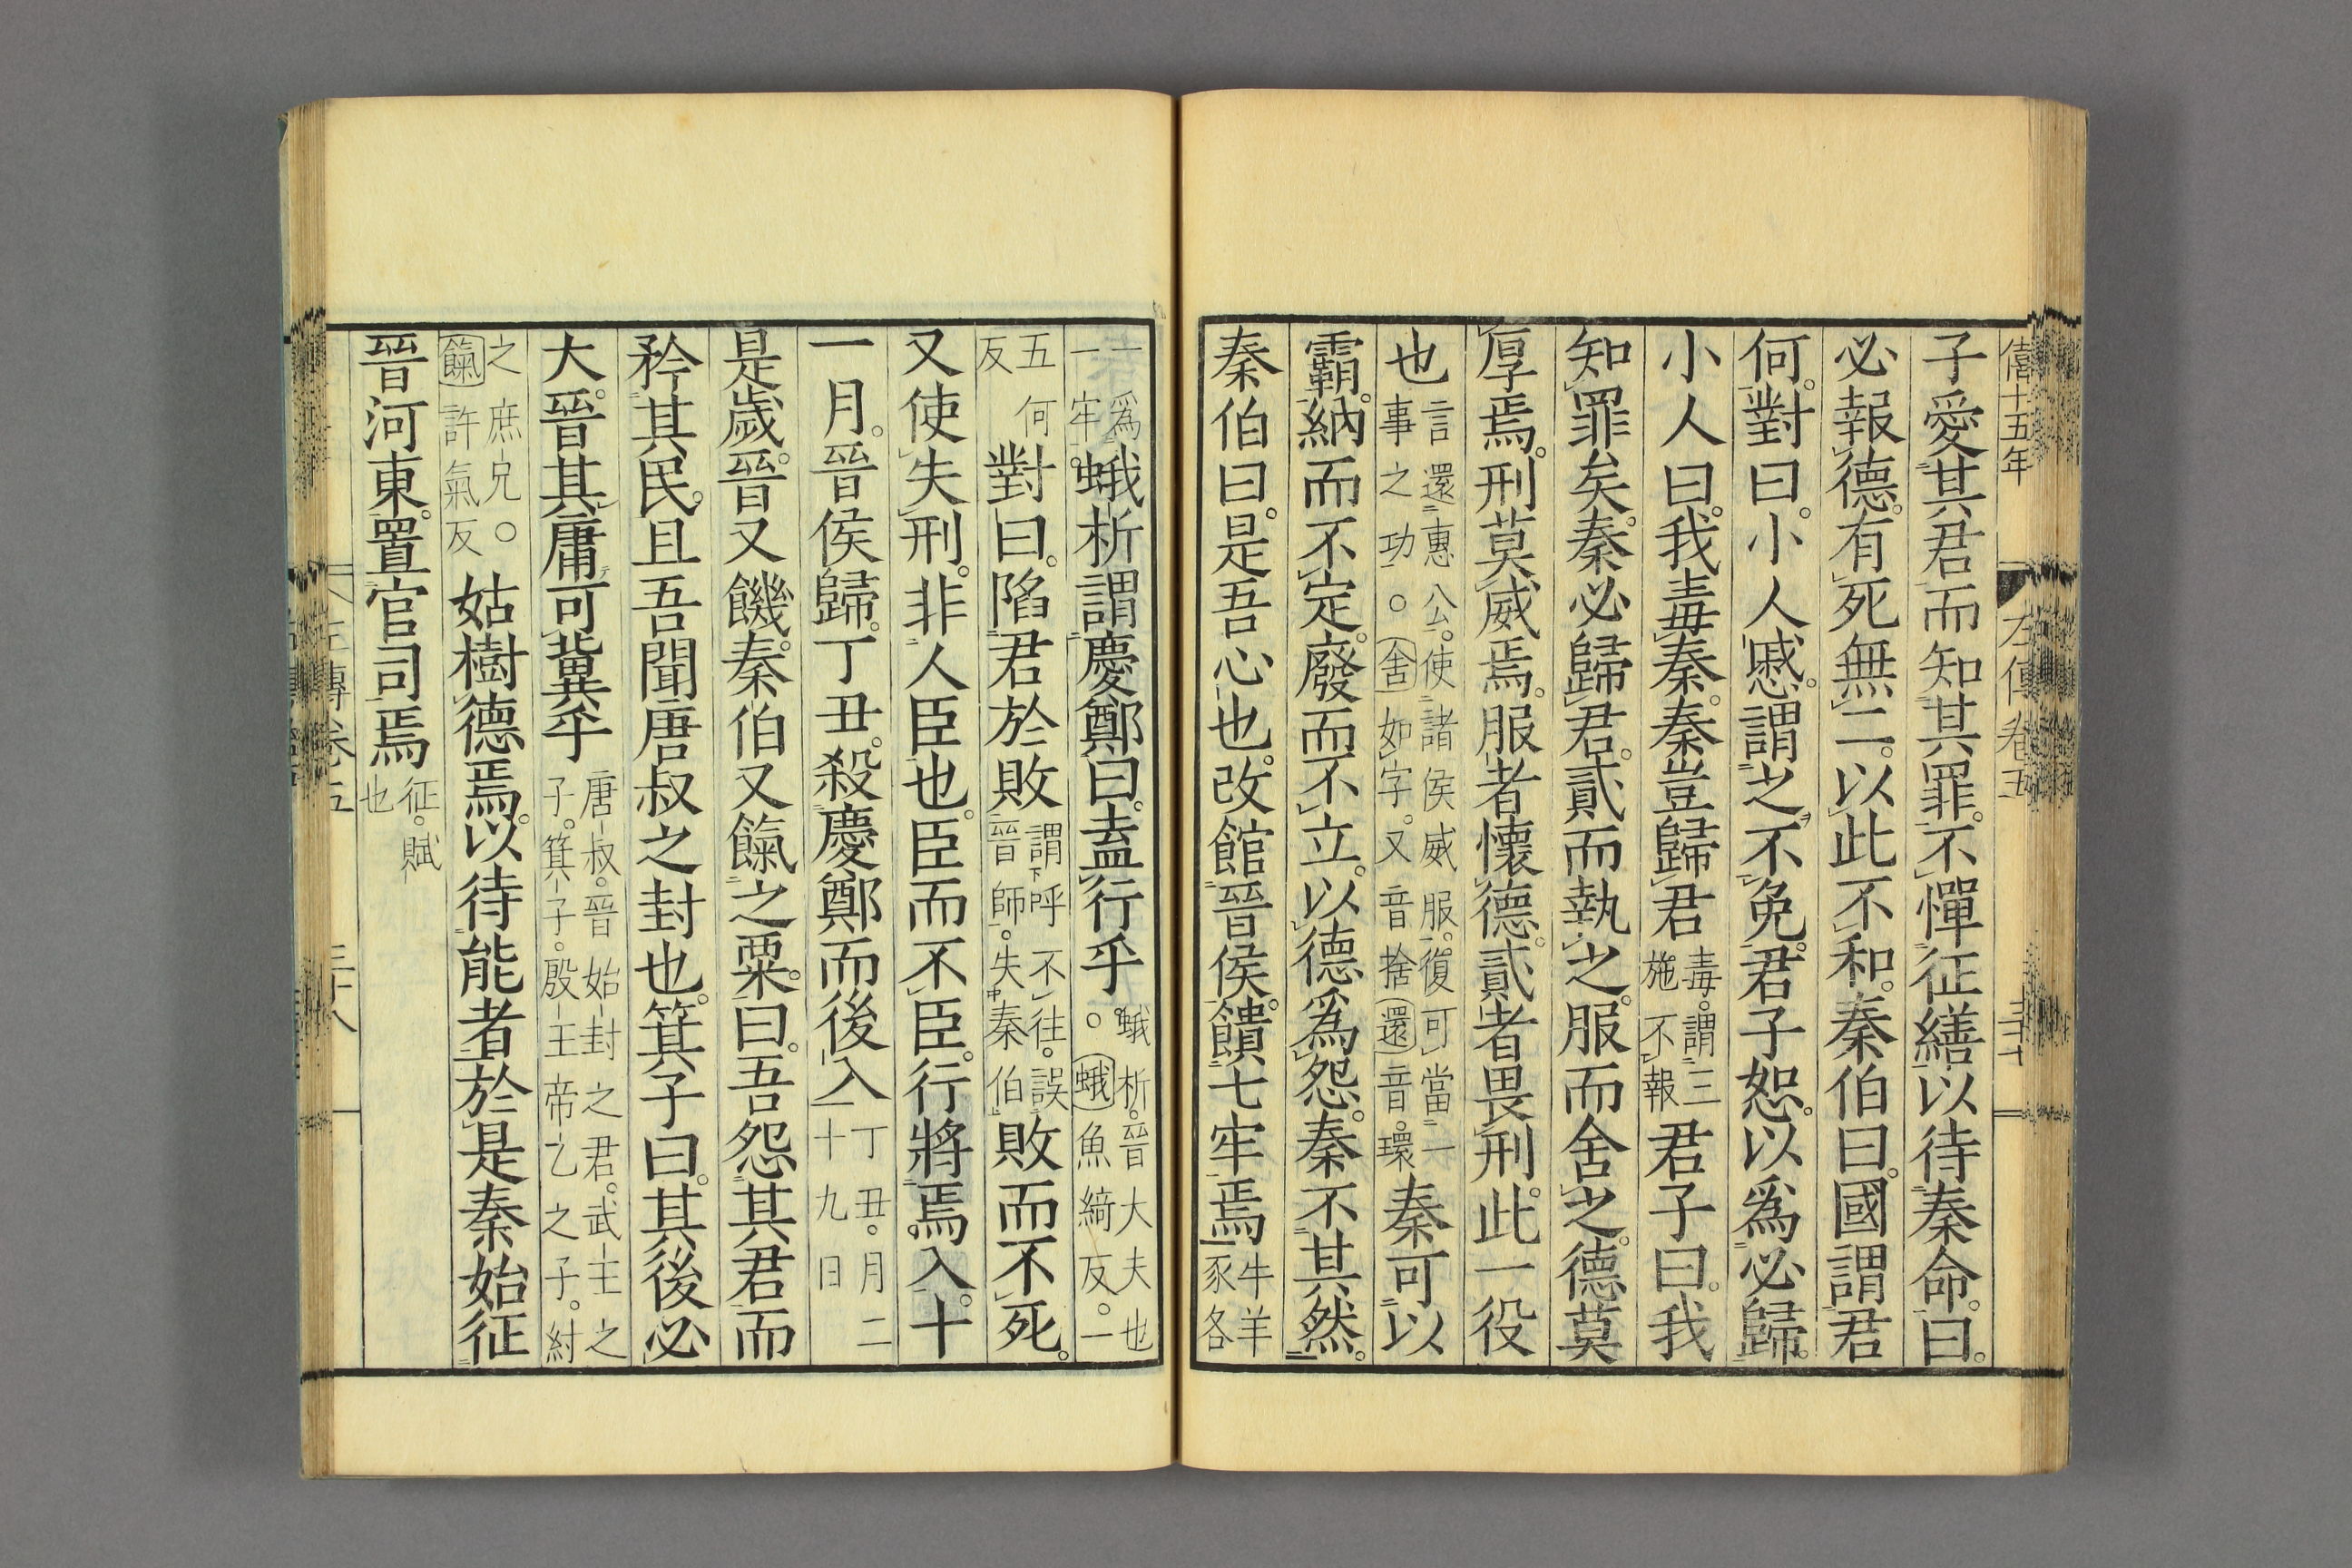 僖十五年 左傳卷五
子愛其君而知其罪。不憚征繕以待秦命。曰。
必報德。有死無二。以此不和。秦伯曰。國謂君
何。對曰。小人慼。謂之不免。君子恕。以爲必歸。
小人曰。我毒秦。秦豈歸君毒。謂三施不報君子曰。我
知罪矣。秦必歸君。貳而執之。服而舍之。德莫
厚焉。刑莫威焉。服者懷德。貳者畏刑。此一役
也言還惠公。使諸侯威服。復可當一事之功。○舍如字。又音捨還音環秦可以
霸。納而不定。廢而不立。以德爲怨。秦不其然。
秦伯曰。是吾心也。改館晉侯。饋七牢焉牛羊豕各
一爲一牢。蛾析謂慶鄭曰。盍行乎蛾析。晉大夫也。○蛾魚綺反。一
五何反對曰。陷君於敗謂呼不往。誤晉師。失秦伯敗而不死。
又使失刑。非人臣也。臣而不臣。行將焉入。十
一月。晉侯歸。丁丑。殺慶鄭而後入丁丑。月二十九日
是歲。晉又饑。秦伯又餼之粟。曰。吾怨其君而
矜其民。且吾聞唐叔之封也。箕子曰。其後必
大。晉其庸可冀乎唐叔。晉始封之君。武王之子。箕子。殷王帝乙之子。紂
之庶兄。○餼許氣反姑樹德焉。以待能者於是秦始征
晉河東。置官司焉征。賦也
左傳卷五